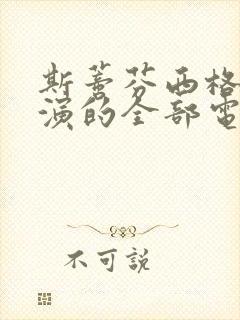 斯蒂芬西格
演的全部電
不可説